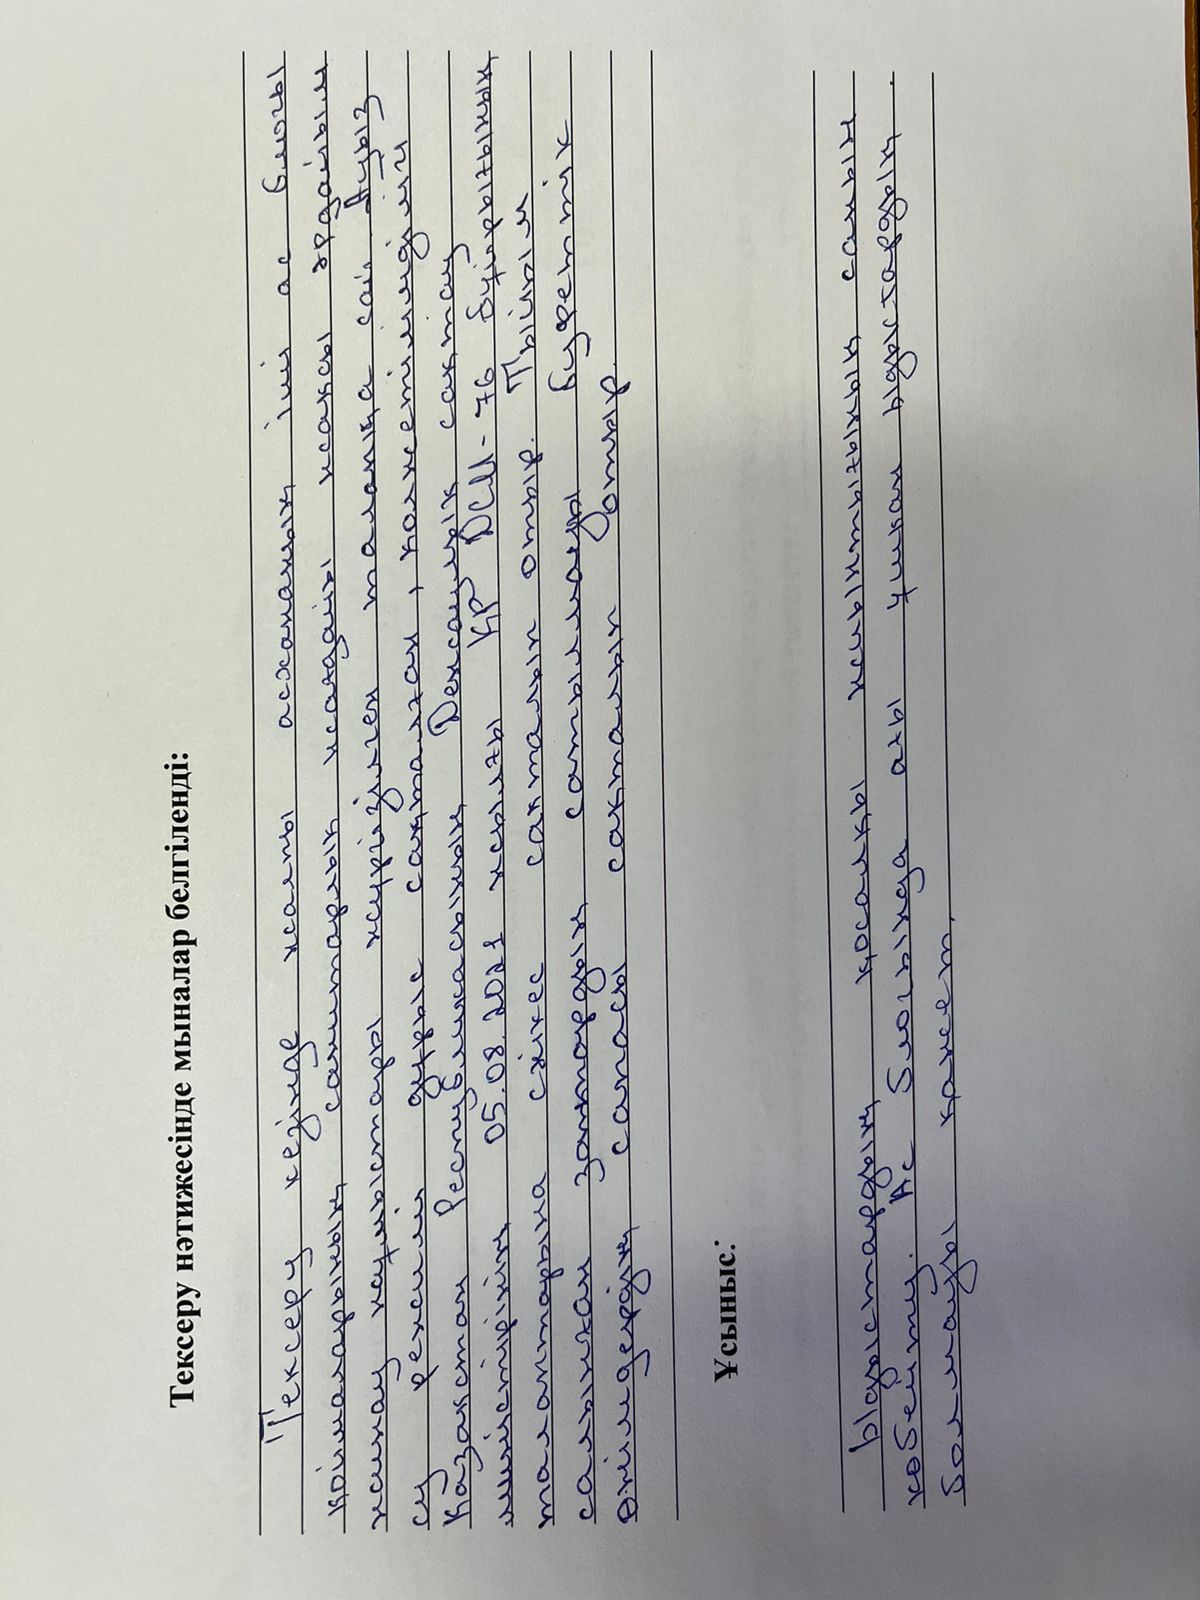 Тексеру нәтижесінде мыналар белгіленді:
Тексеру кезінде жалпы асхананың іші ас блогы
қоймаларының санитарлық жағдайы жақсы әрдайым
жинау жұмыстары жүргізілген талапқа сай. Ауыз
су режимі дұрыс сақталған, қолжетімділігі
Қазақстан Республикасының Денсаулық сақтау
министрінің 05.08.2021 жылғы ҚР ДСМ-76 бұйрығының
талаптарына сәйкес сақталып отыр. Тыйым
салынған заттардың сатылмауы буфеттік
өнімдердің сапасы сақталып отыр.
Ұсыныс:
Ыдыстардың қосалқы жиынтығының санын
көбейту. Ас блогында аты ұшқан ыдыстардың
болмауы қажет.